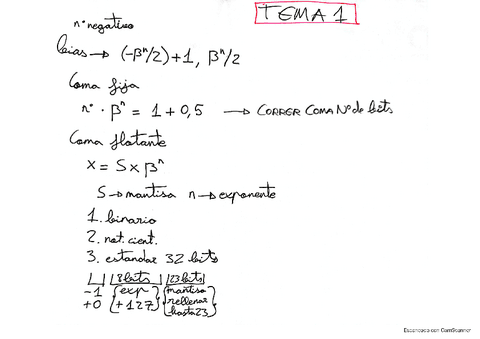 TEMA 1
nº negativo
bias → (-βⁿ/2)+1, βⁿ/2
Coma fija
nº · βⁿ = 1 + 0,5 → CORRER COMA Nº de bits
Coma flotante
x = S x βⁿ
S → mantisa n → exponente
1. binario
2. not. cient.
3. estandar 32 bits
|_| |8 bits| |23 bits|
-1 {exp {mantisa
+0 {+127} rellenar
hasta 23}
Escaneado con CamScanner